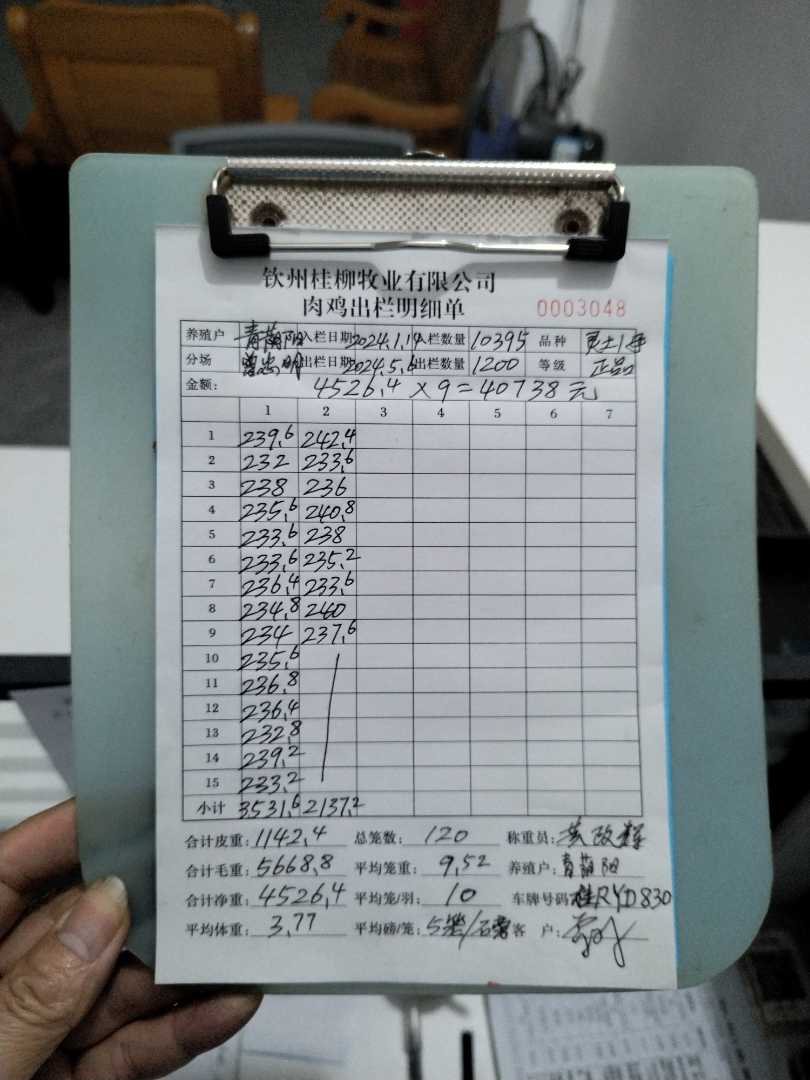 钦州桂柳牧业有限公司
肉鸡出栏明细单 0003048
养殖户 青荫阳 入栏日期 2024.1.19 入栏数量 10395 品种 灵土1号
分场 出栏日期 2024.5.6 出栏数量 1200 等级 正品
金额: 4526.4×9=40738元
1 2 3 4 5 6 7
1 239.6 242.4
2 232 233.6
3 238 236
4 235.6 240.8
5 233.6 238
6 233.6 235.2
7 236.4 233.6
8 234.8 240
9 234 237.6
10 235.6
11 236.8
12 236.4
13 232.8
14 239.2
15 233.2
小计 3531.6 2137.2
合计皮重: 1142.4 总笼数: 120 称重员:
合计毛重: 5668.8 平均笼重: 9.52 养殖户: 青荫阳
合计净重: 4526.4 平均笼/羽: 10 车牌号码 桂RYD830
平均体重: 3.77 平均磅/笼: 客 户: